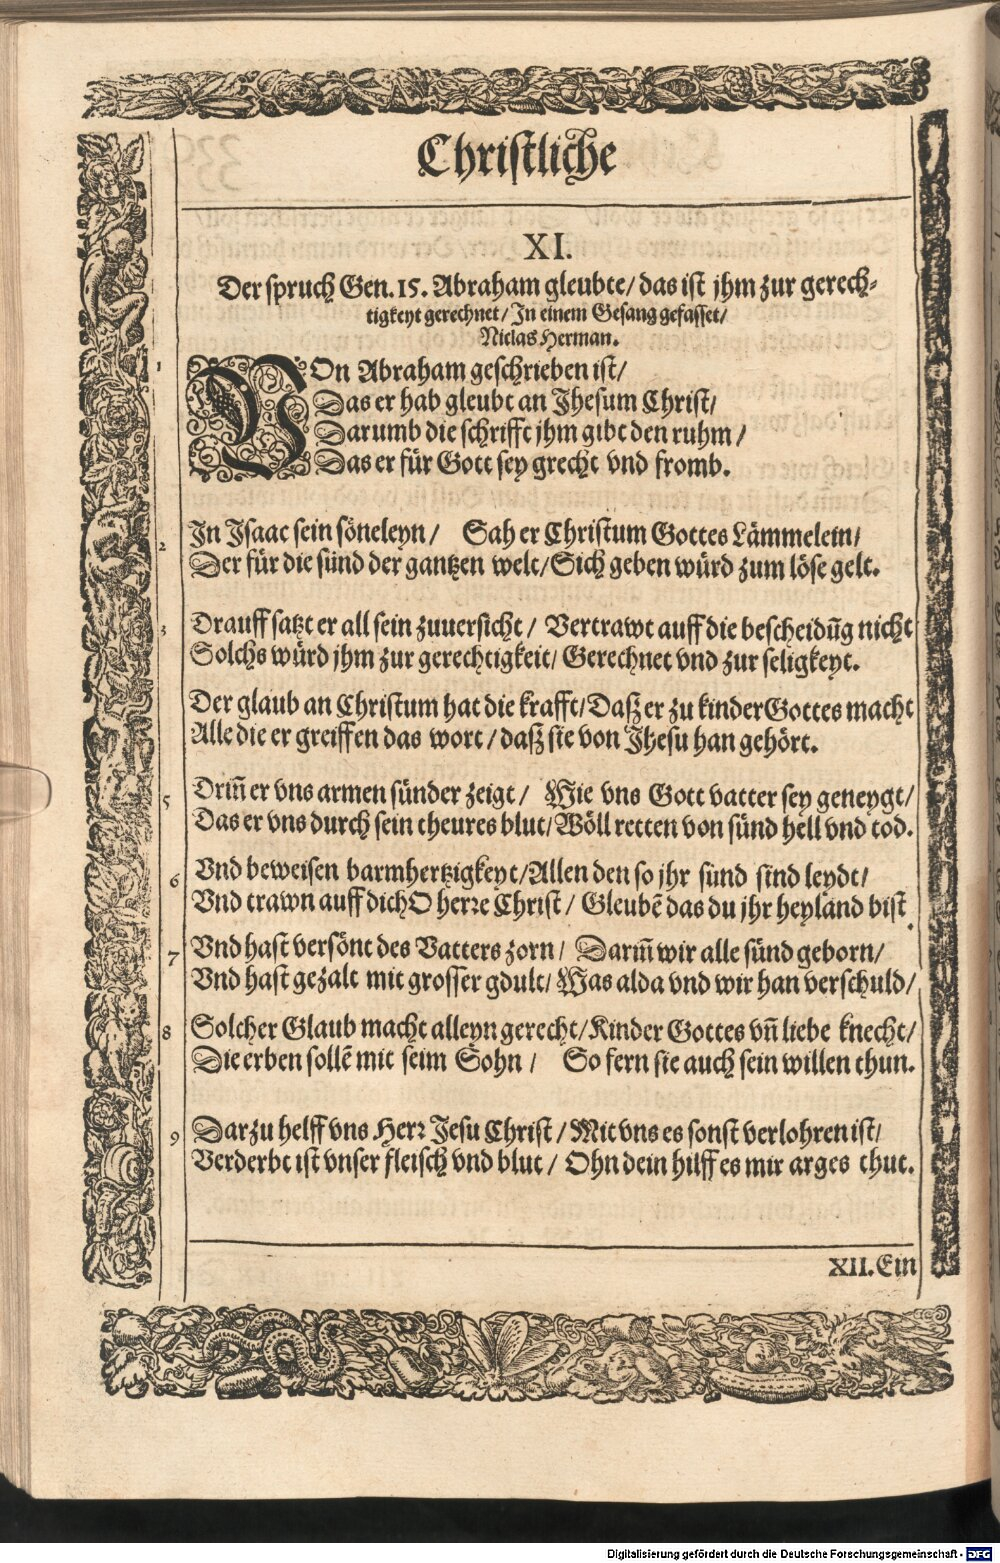 Christliche
XI.
Der spruch Gen. 15. Abraham gleubte/ das ist jhm zur gerech-
tigkeyt gerechnet/ In einem Gesang gefasset/
Niclas Herman.
1 VOn Abraham geschrieben ist/
Das er hab gleubt an Jhesum Christ/
Darumb die schrifft jhm gibt den ruhm/
Das er für Gott sey grecht vnd fromb.
2 In Isaac sein söneleyn/ Sah er Christum Gottes Lämmelein/
Der für die sünd der gantzen welt/ Sich geben würd zum löse gelt.
3 Drauff satzt er all sein zuuersicht/ Vertrawt auff die bescheidūg nicht
Solchs würd jhm zur gerechtigkeit/ Gerechnet vnd zur seligkeyt.
Der glaub an Christum hat die krafft/ Daß er zu kinder Gottes macht
Alle die er greiffen das wort/ daß sie von Jhesu han gehört.
5 Driñ er vns armen sünder zeigt/ Wie vns Gott vatter sey geneygt/
Das er vns durch sein theures blut/ Wöll retten von sünd hell vnd tod.
6 Vnd beweisen barmhertzigkeyt/ Allen den so jhr sünd sind leydt/
Vnd trawn auff dich O herre Christ/ Gleubē das du jhr heyland bist.
7 Vnd hast versönt des Vatters zorn/ Dariñ wir alle sünd geborn/
Vnd hast gezalt mit grosser gdult/ Was alda vnd wir han verschuld/
8 Solcher Glaub macht alleyn gerecht/ Kinder Gottes vñ liebe knecht/
Die erben sollē mit seim Sohn/ So fern sie auch sein willen thun.
9 Darzu helff vns Herr Jesu Christ/ Mit vns es sonst verlohren ist/
Verderbt ist vnser fleisch vnd blut/ Ohn dein hilff es mir arges thut.
XII. Ein
Digitalisierung gefördert durch die Deutsche Forschungsgemeinschaft - DFG